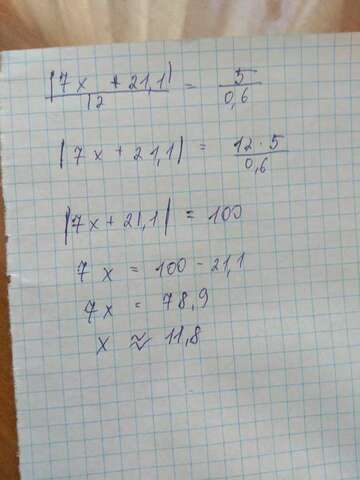 |7x + 21,1| / 12 = 5 / 0,6
|7x + 21,1| = 12 · 5 / 0,6
|7x + 21,1| = 100
7x = 100 - 21,1
7x = 78,9
x ≈ 11,8